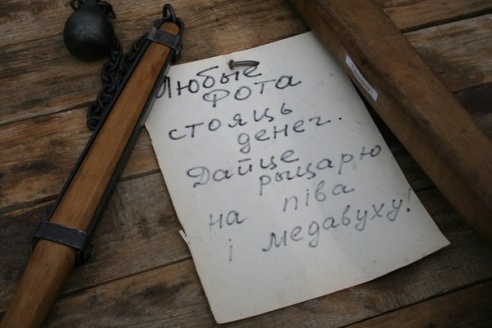 Любые
фота
стояць
денег.
Дайце
рыцарю
на піва
і медавуху!